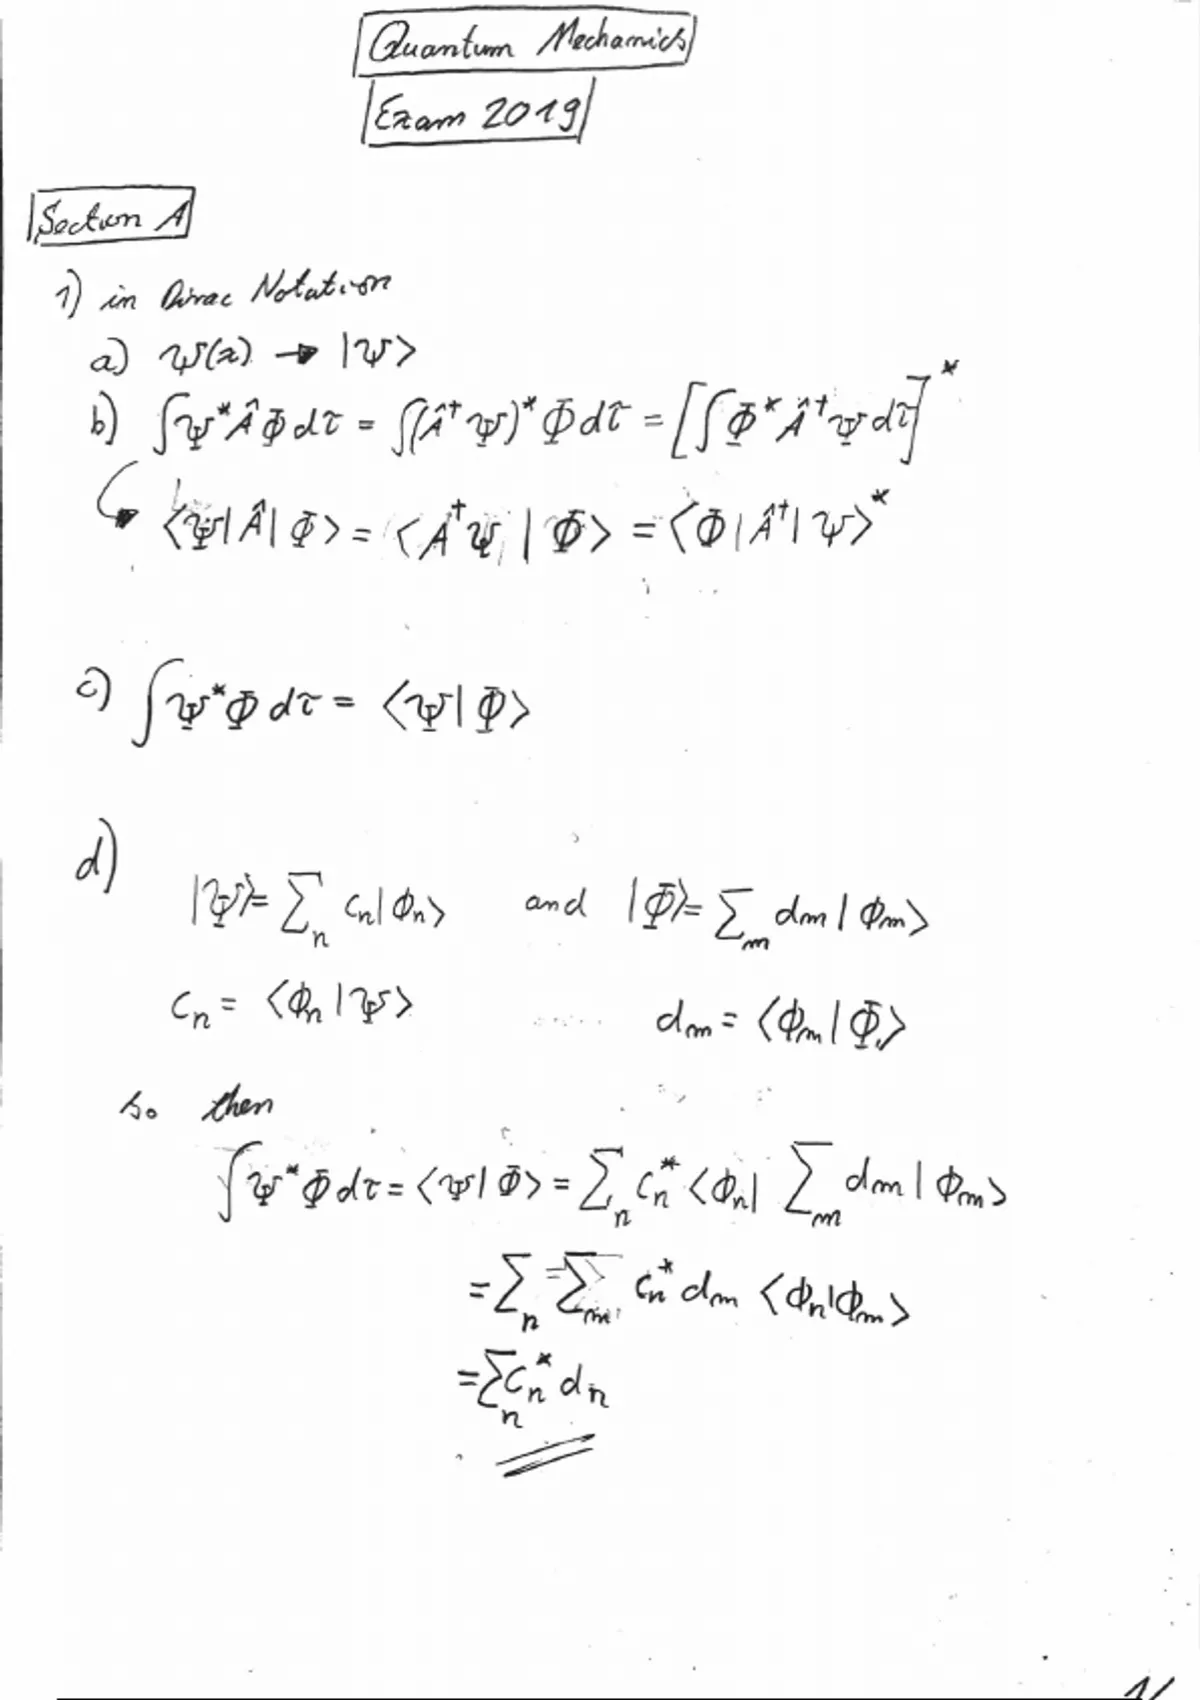 Quantum Mechanics
Exam 2019
Section A
1) in Dirac Notation
a) Ψ(x) → |Ψ>
b) ∫Ψ*ÂΦdτ = ∫(†Ψ)*Φdτ = [∫Φ*†Ψdτ]*
<Ψ|Â|Φ> = <A†Ψ|Φ> = <Φ|†|Ψ>*
c) ∫Ψ*Φdτ = <Ψ|Φ>
d)
|Ψ> = Σ_n c_n|ϕ_n> and |Φ> = Σ_m d_m|ϕ_m>
c_n = <ϕ_n|Ψ> d_m = <ϕ_m|Φ>
so then
∫Ψ*Φdτ = <Ψ|Φ> = Σ_n c_n* <ϕ_n| Σ_m d_m|ϕ_m>
= Σ_n Σ_m c_n* d_m <ϕ_n|ϕ_m>
= Σ_n c_n* d_n